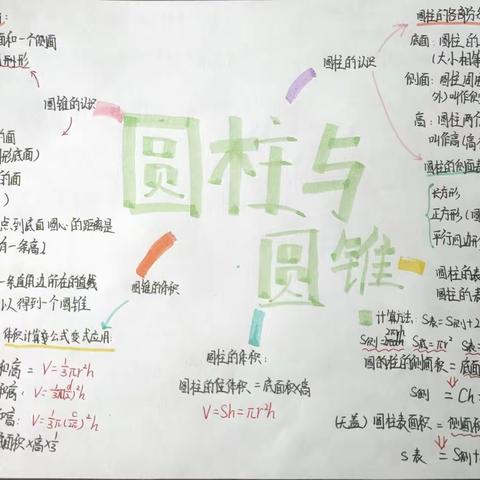 面和一个侧面
圆锥的认识
的面
形底面)
的面
点到底面圆心的距离是
有一条高)
一条直角边所在的直线
可以得到一个圆锥
体积计算公式变式应用:
和高: V=⅓πr²h
V=⅓π(d/2)²h
和高: V=⅓π(C/2π)²h
底面积×高×⅓
圆锥的体积
圆柱与
圆锥
圆柱的体积:
圆柱的体积 = 底面积×高
V=Sh=πr²h
圆柱的认识
圆柱的各部分名
底面: 圆柱的
(大小相等
侧面: 圆柱周围
外)叫作侧
高: 圆柱两个
叫作高(高
圆柱的侧面
长方形
正方形
平行四边形
圆柱的表
圆柱的表
计算方法: S表=S侧+2
S侧=2πrh S底=πr² S表=
圆柱的侧面积 = 底面
S侧 = Ch
(无盖) 圆柱表面积 = 侧面积
S表 = S侧+